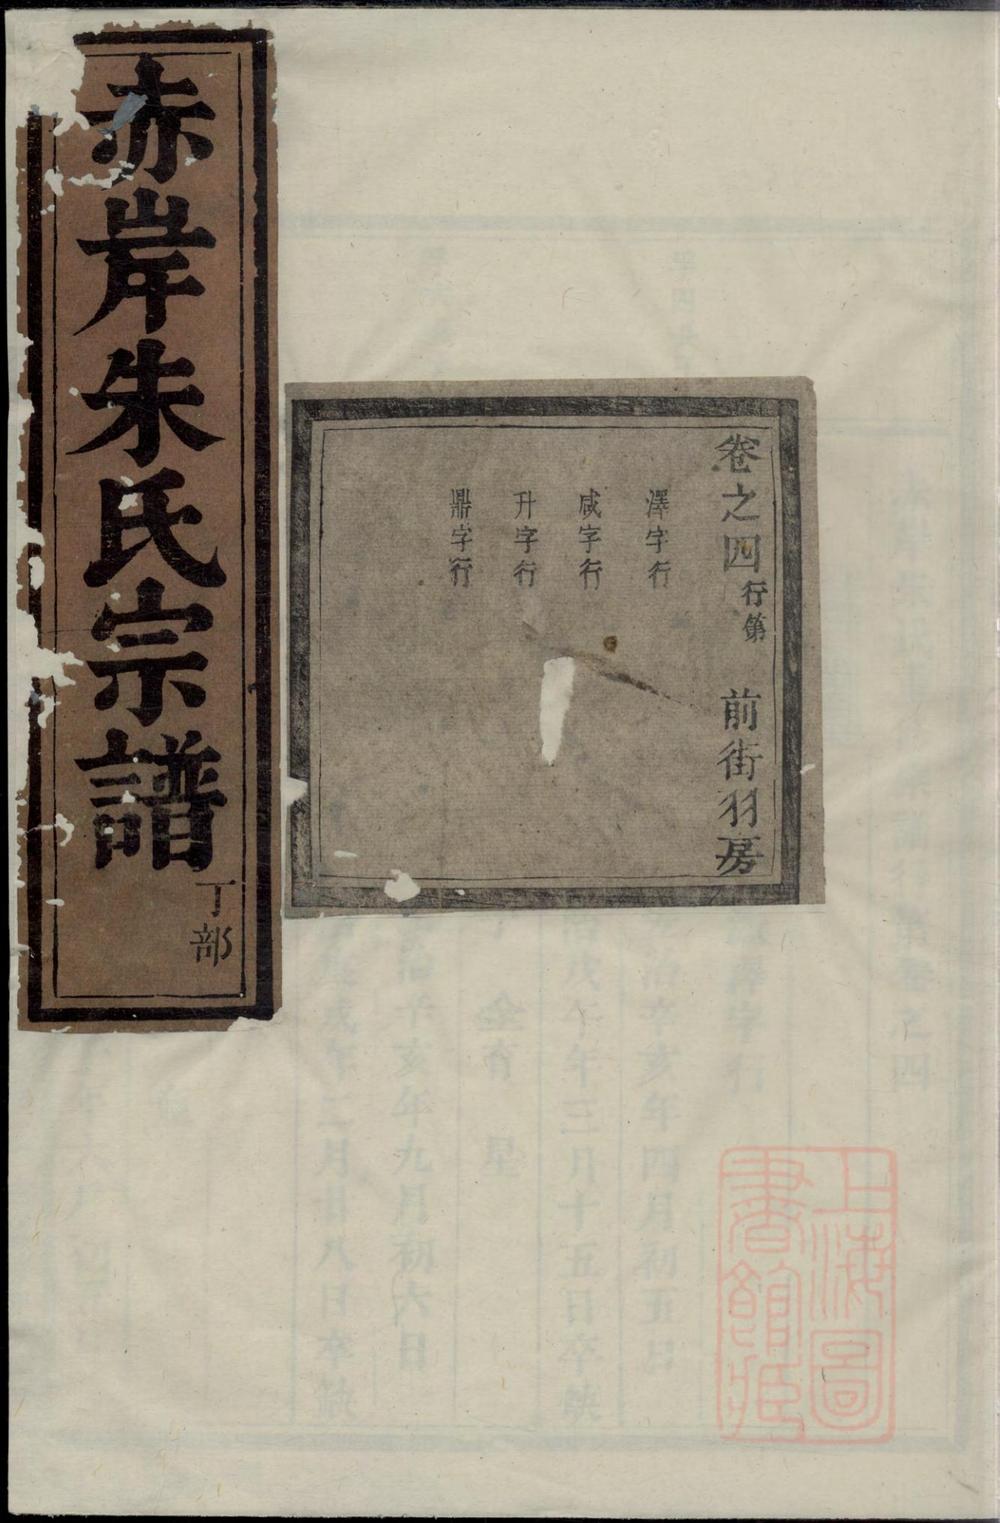 赤岸朱氏宗譜
丁部
卷之四 行第 前街羽房
澤字行
咸字行
升字行
鼎字行
上海圖
書館藏